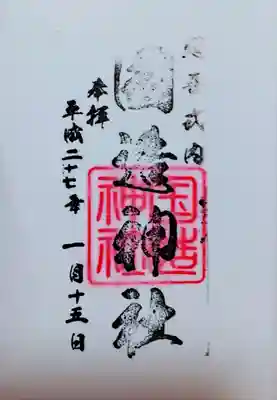 延喜式内
國造神社
国造神社
奉拝
平成二十七年 一月十五日